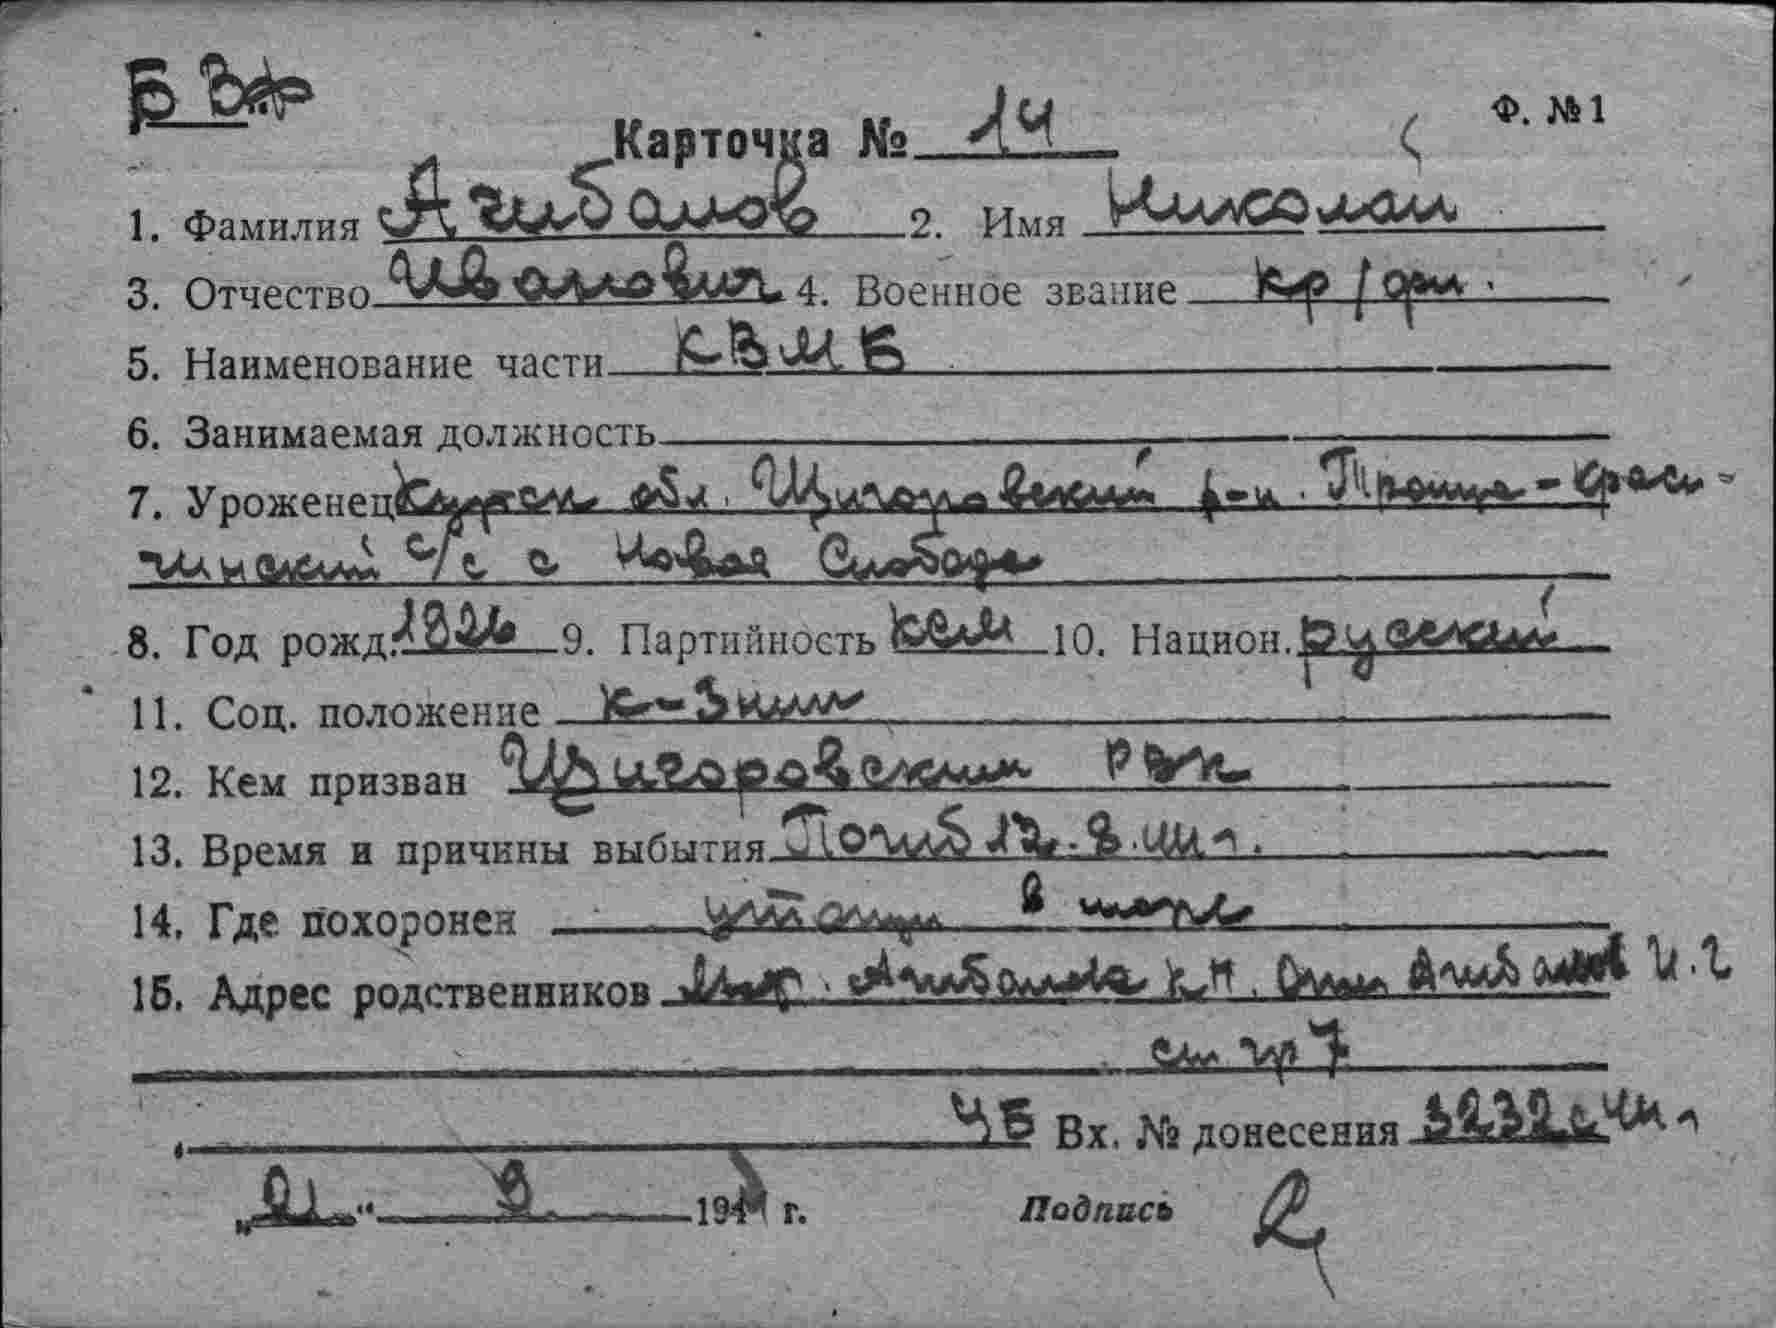 Ф. № 1
Карточка № 14
1. Фамилия Агибалов 2. Имя Николай
3. Отчество Иванович 4. Военное звание кр/фл.
5. Наименование части КВМБ
6. Занимаемая должность
7. Уроженец Курская обл. Щигоровский р-н. Троице-краси-
нский с/с с Новая Слобода
8. Год рожд. 1921 9. Партийность 10. Национ. русский
11. Соц. положение к-зник
12. Кем призван Щигоровским РВК
13. Время и причины выбытия Погиб 12.8.41 г.
14. Где похоронен утонул в море
15. Адрес родственников Агибалова Агибалов И.Г
ст гр 7
ЧБ Вх. № донесения 3232с 41 г
„21" 9 194 г. Подпись